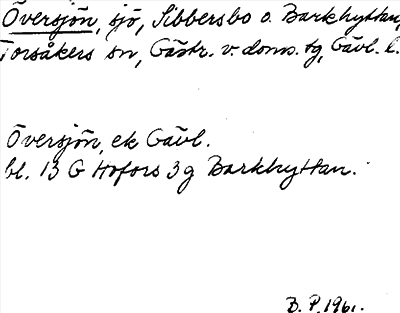 Översjön, sjö, Sibbersbo o. Barkhyttan,
Torsåkers sn, Gästr. v. doms. tg, Gävl. l.
Översjön, ek Gävl.
bl. 13 G Hofors 3g Barkhyttan.
B. P. 1961.